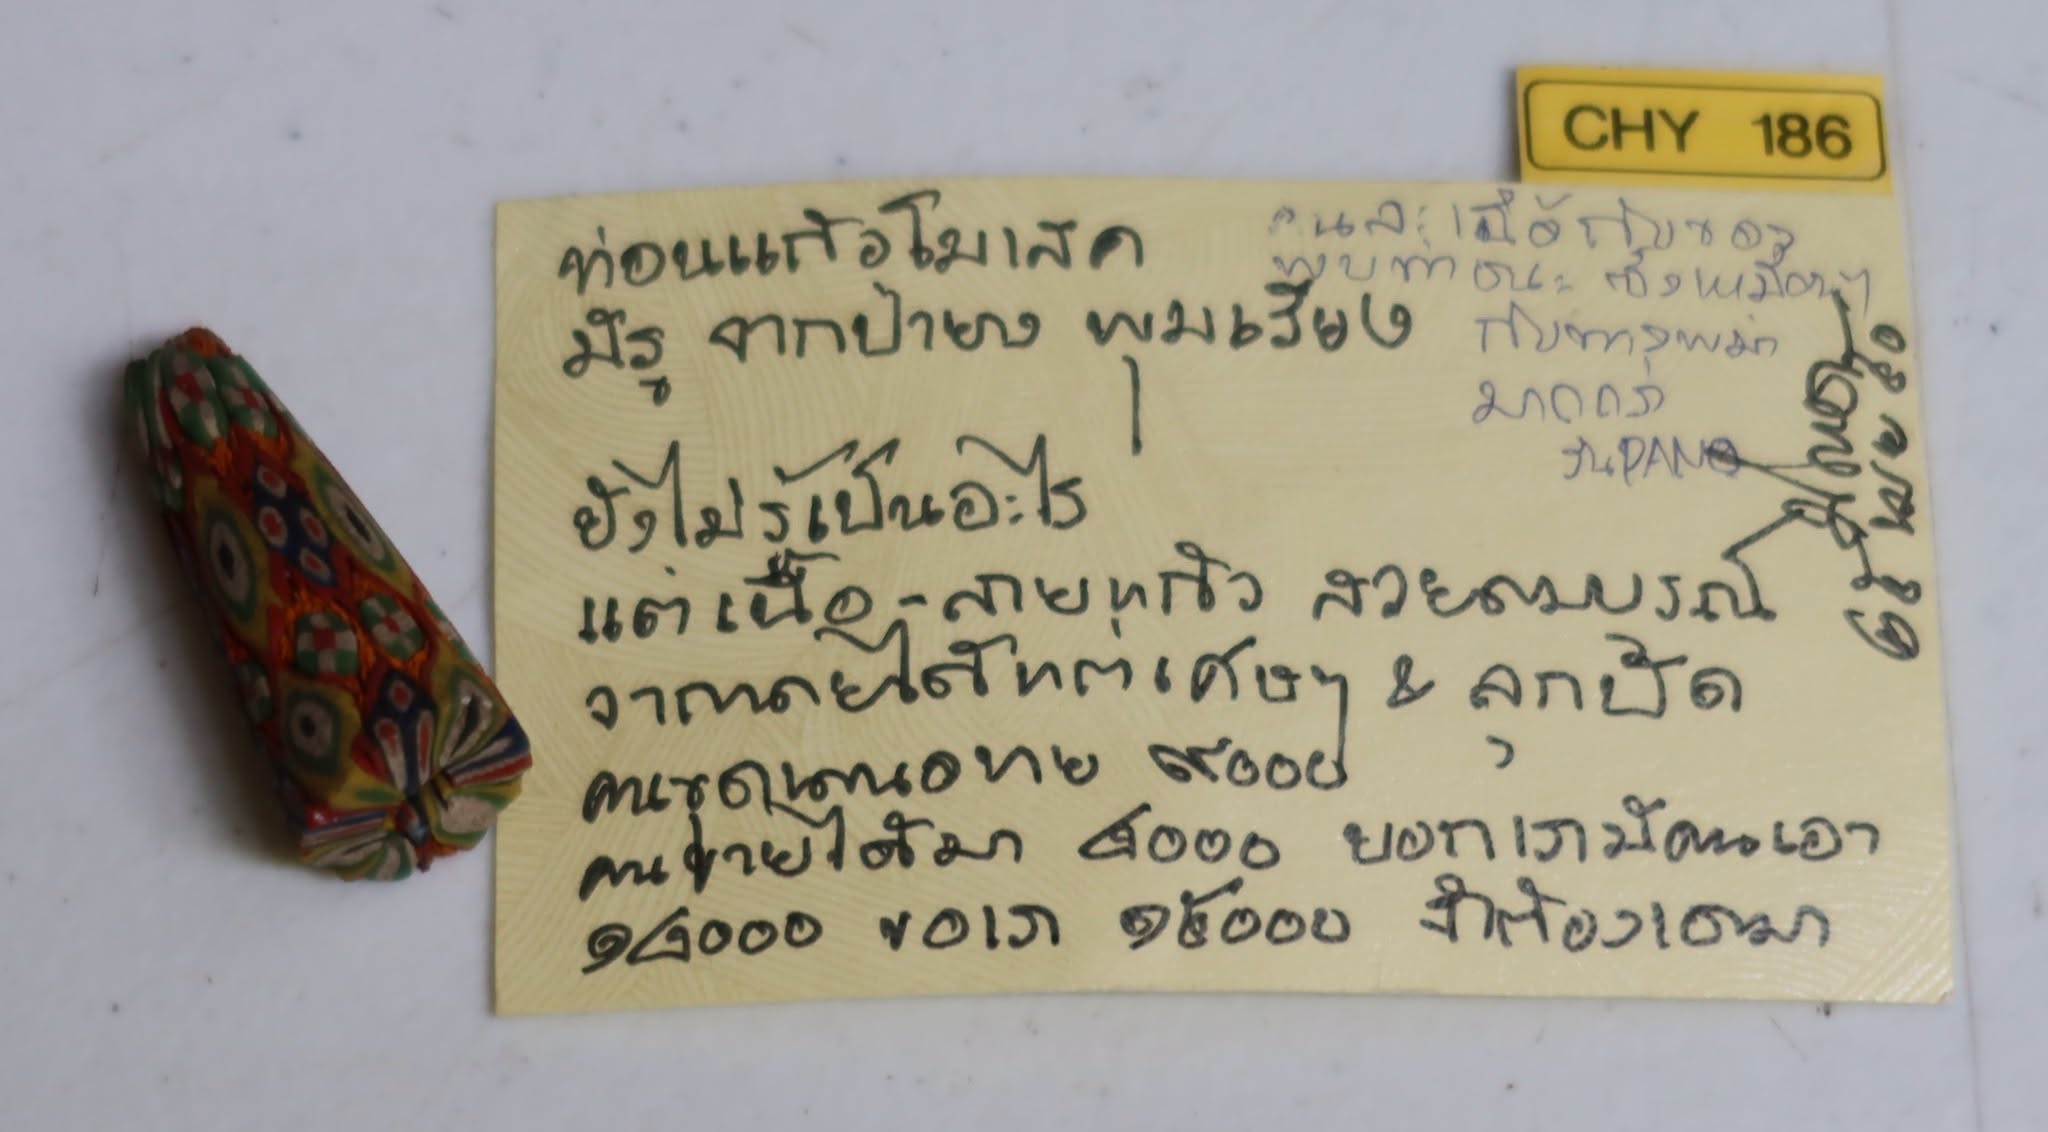 CHY 186
ท่อนแก้วโมเสค
มีรู จากป้ายง พุมเรียง
ยังไม่รู้เป็นอะไร
แต่เนื้อ-ลายแก้ว สวยสมบรณ์
ได้แต่เศษๆ & ลูกปัด
คนขุด ขาย ๙๐๐๐
คนขายได้มา ๘๐๐๐ บอกเรามีคนเอา
๑๘๐๐๐ ขอเรา ๑๕๐๐๐ จำต้องเอามา
คนละเนื้อกับของ
พบท่าชนะ ซึ่งเหมือนๆ
กับทางพม่า